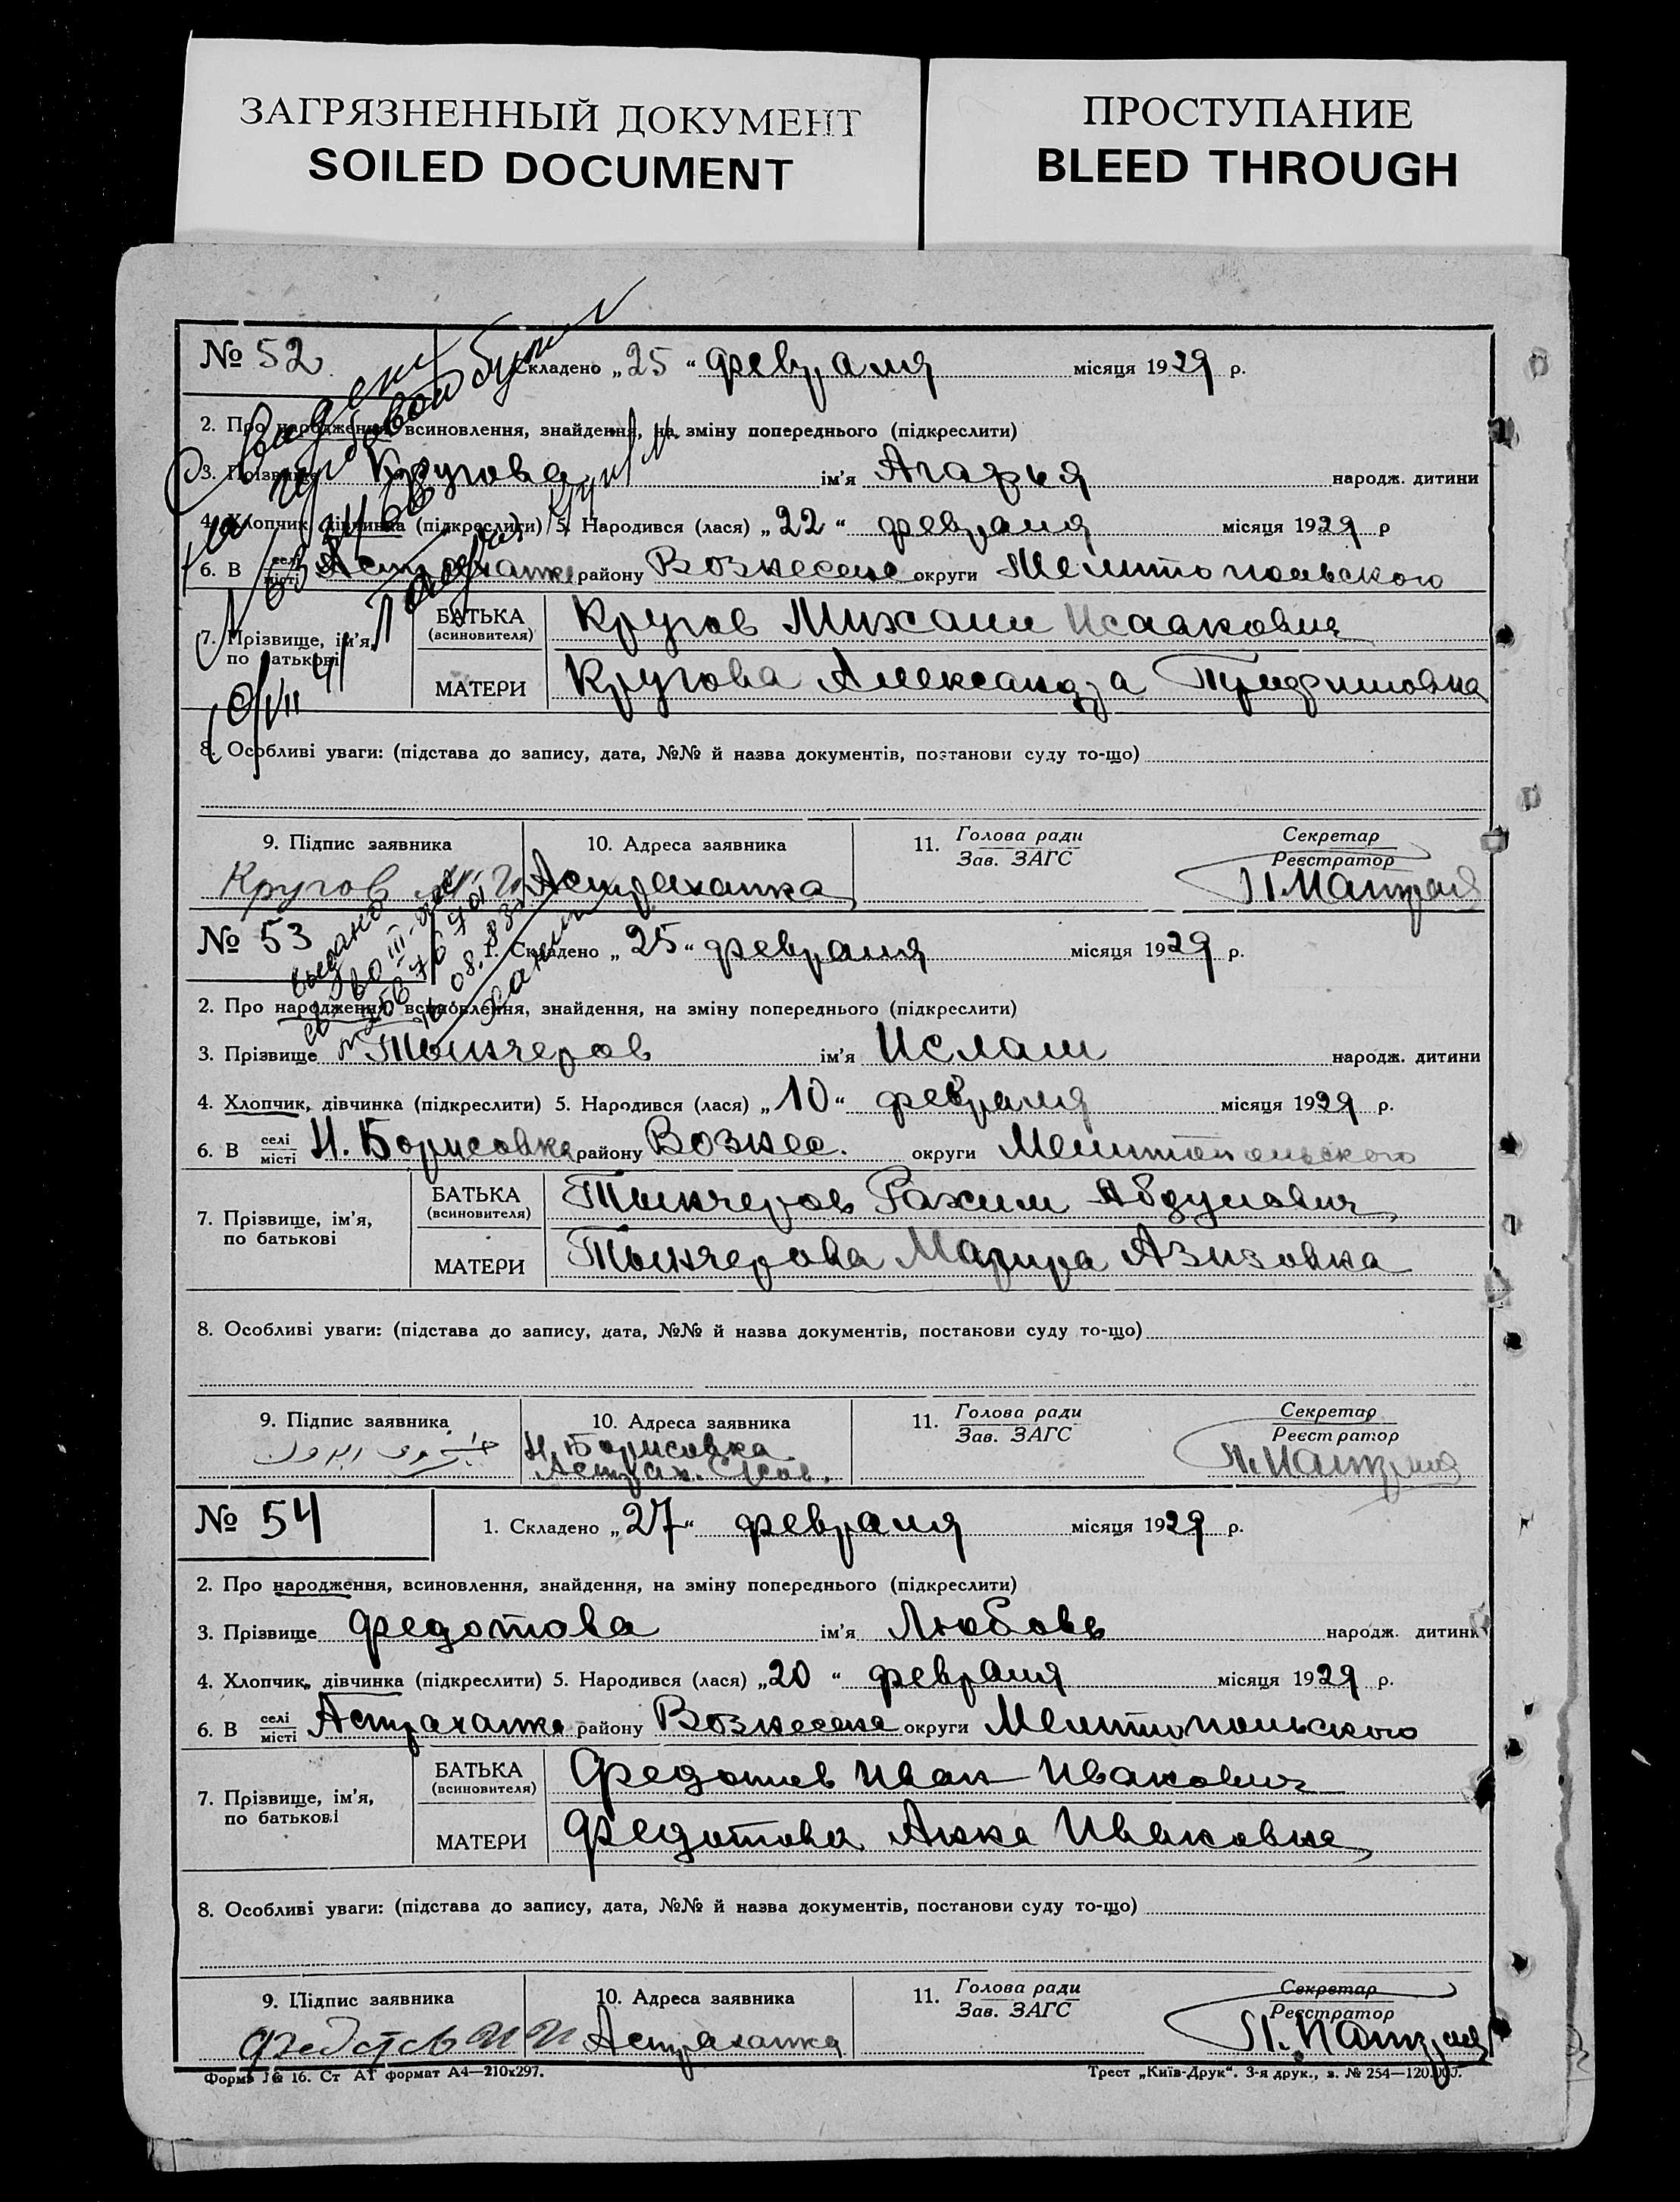 ЗАГРЯЗНЕННЫЙ ДОКУМЕНТ
SOILED DOCUMENT
ПРОСТУПАНИЕ
BLEED THROUGH
№ 52
Складено „25“ февраля місяця 1929 р.
2. Про народження, всиновлення, знайдення, на зміну попереднього (підкреслити)
3. Прізвище Кругова ім'я Агафья народж. дитини
4. Хлопчик, дівчинка (підкреслити) 5. Народився (лася) „22“ февраля місяця 1929 р
6. В селі місті Астраханке району Вознесенс округи Мелитопольского
7. Прізвище, ім'я, по батькові
БАТЬКА (всиновителя) Кругов Михаил Исаакович
МАТЕРИ Кругова Александра
8. Особливі уваги: (підстава до запису, дата, №№ й назва документів, постанови суду то-що)
9. Підпис заявника
10. Адреса заявника
11. Голова ради
Зав. ЗАГС
Секретар
Реєстратор
Кругов М И
Астраханка
№ 53
1. Складено „25“ февраля місяця 1929 р.
выдано
2. Про народження, всиновлення, знайдення, на зміну попереднього (підкреслити)
3. Прізвище Тынчеров ім'я Ислам народж. дитини
4. Хлопчик, дівчинка (підкреслити) 5. Народився (лася) „10“ февраля місяця 1929 р.
6. В селі місті Н. Борисовка району Вознес. округи Мелитопольского
7. Прізвище, ім'я, по батькові
БАТЬКА (всиновителя) Тынчеров Рахим Абдулович
МАТЕРИ Тынчерова Азизовна
8. Особливі уваги: (підстава до запису, дата, №№ й назва документів, постанови суду то-що)
9. Підпис заявника
10. Адреса заявника
11. Голова ради
Зав. ЗАГС
Секретар
Реєстратор
Н. Борисовка
Астрах.
№ 54
1. Складено „27“ февраля місяця 1929 р.
2. Про народження, всиновлення, знайдення, на зміну попереднього (підкреслити)
3. Прізвище Федотова ім'я Любовь народж. дитини
4. Хлопчик, дівчинка (підкреслити) 5. Народився (лася) „20“ февраля місяця 1929 р.
6. В селі місті Астраханке району Вознесенс округи Мелитопольского
7. Прізвище, ім'я, по батькові
БАТЬКА (всиновителя) Федотов Иван Иванович
МАТЕРИ Федотова Анна Ивановна
8. Особливі уваги: (підстава до запису, дата, №№ й назва документів, постанови суду то-що)
9. Підпис заявника
10. Адреса заявника
11. Голова ради
Зав. ЗАГС
Секретар
Реєстратор
Федотов И И
Астраханка
Форма № 16. Ст А1 формат А4—210х297.
Трест „Київ-Друк“. 3-я друк., з. № 254—120.000.